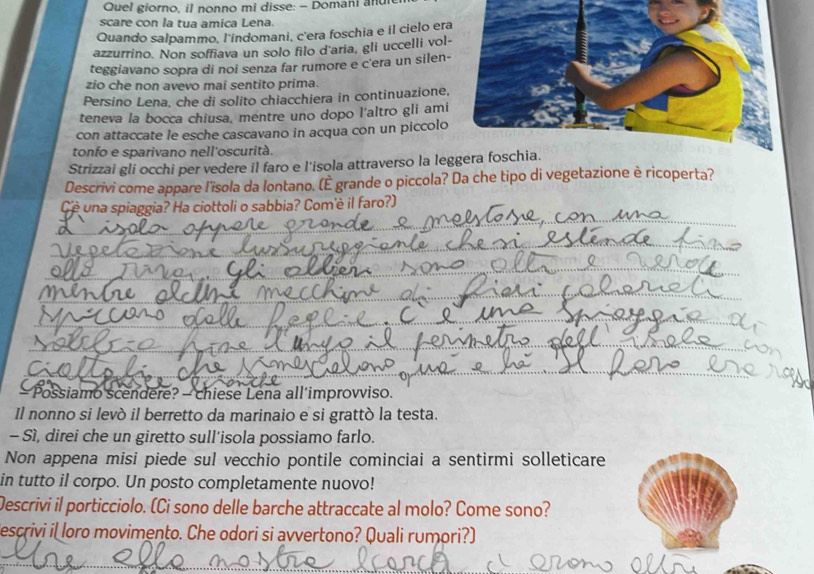 Quel giorno, il nonno mi disse: – Domani
scare con la tua amica Lena.
Quando salpammo, l'indomani, c'era foschia e il cielo era
azzurrino. Non soffiava un solo filo d'aria, gli uccelli vol-
teggiavano sopra di noi senza far rumore e c'era un silen-
zio che non avevo mai sentito prima.
Persino Lena, che di solito chiacchiera in continuazione,
teneva la bocca chiusa, mentre uno dopo l'altro gli ami
con attaccate le esche cascavano in acqua con un piccolo
tonfo e sparivano nell'oscurità.
Strizzai gli occhi per vedere il faro e l'isola attraverso la leggera foschia.
Descrivi come appare l'isola da lontano. (È grande o piccola? Da che tipo di vegetazione è ricoperta?
C'è una spiaggia? Ha ciottoli o sabbia? Com'è il faro?)
L'isola appare grande e maestosa, con una
vegetazione lussureggiante che si estende fino
alla riva. Gli alberi sono alti e verdi
mentre alcune macchine di fiori colorati
spiccano dalle foglie. C'è una spiaggia di
sabbia fine lungo il perimetro dell'isola con
ciottoli che si mescolano qua e là. Il faro era rosso
con strisce bianche
– Possiamo scendere? – chiese Lena all'improvviso.
Il nonno si levò il berretto da marinaio e si grattò la testa.
– Sì, direi che un giretto sull'isola possiamo farlo.
Non appena misi piede sul vecchio pontile cominciai a sentirmi solleticare
in tutto il corpo. Un posto completamente nuovo!
Descrivi il porticciolo. (Ci sono delle barche attraccate al molo? Come sono?
escrivi il loro movimento. Che odori si avvertono? Quali rumori?)
Oltre alla nostra barca ci erano altre